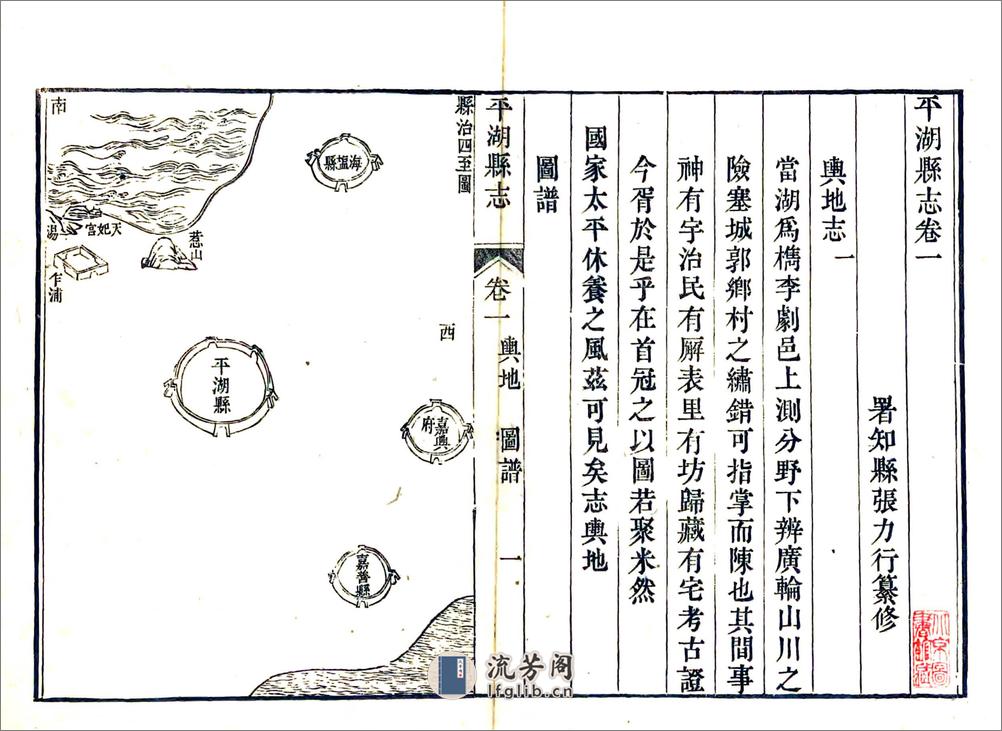 平湖縣志卷一
署知縣張力行纂修
輿地志一
當湖爲檇李劇邑上測分野下辨廣輪山川之
險塞城郭鄉村之繡錯可指掌而陳也其間事
神有宇治民有廨表里有坊歸藏有宅考古證
今胥於是乎在首冠之以圖若聚米然
國家太平休養之風茲可見矣志輿地
圖譜
平湖縣志
卷一
輿地
圖譜
一
縣治四至圖
西
南
海盬縣
天妃宮
湯
乍浦
惹山
平湖縣
嘉興府
嘉善縣
流芳阁
lfglib.cn